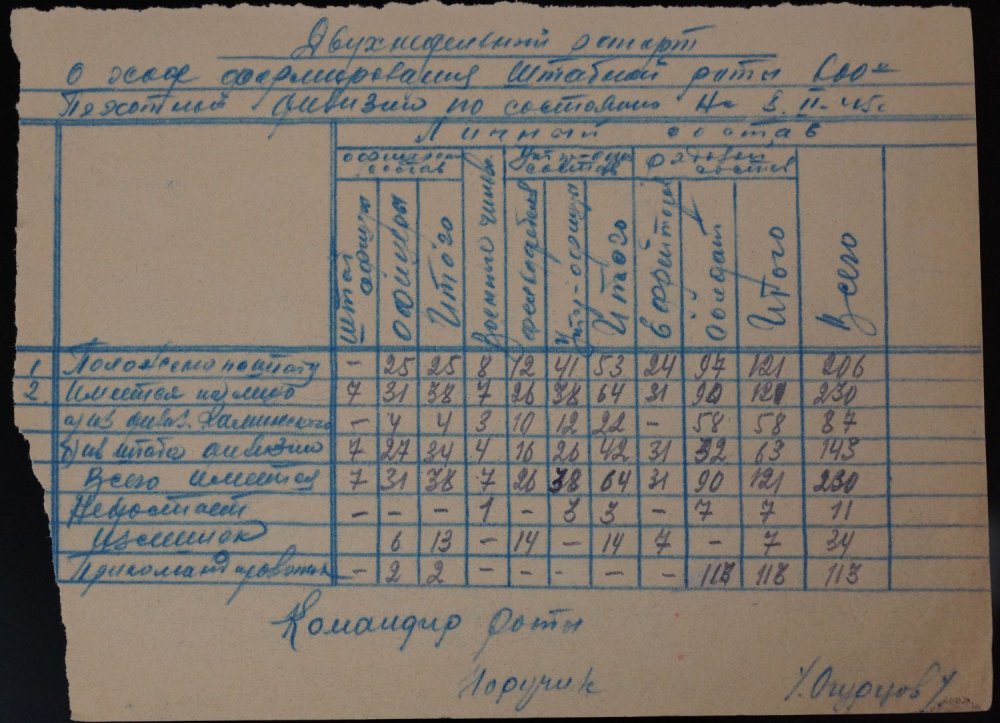 Двухнедельный рапорт
О ходе формирования Штабной роты 600й
Пехотной дивизии по состоянию на 8.II-45г.
Личный состав
офицерск. состав
Унт.-офиц. состав
рядовой состав
Штаб офицеры
Офицеры
Итого
Военные чиновн.
фельдфебеля
Унтер-офицеры
Итого
Ефрейторы
Солдат
Итого
Всего
1 Положено по штату - 25 25 8 12 41 53 24 97 121 206
2. Имеется налицо 7 31 38 7 26 38 64 31 90 121 230
а) из дивиз. Каминского - 4 4 3 10 12 22 - 58 58 87
б) из штата дивизии 7 27 34 4 16 26 42 31 32 63 143
Всего имеется 7 31 38 7 26 38 64 31 90 121 230
Недостает - - - 1 - 3 3 - 7 7 11
Излишек 6 13 - 14 - 14 7 - 7 34
Прикомандировано - 2 2 - - - - - 113 113
Командир роты
Поручик /Огурцов/